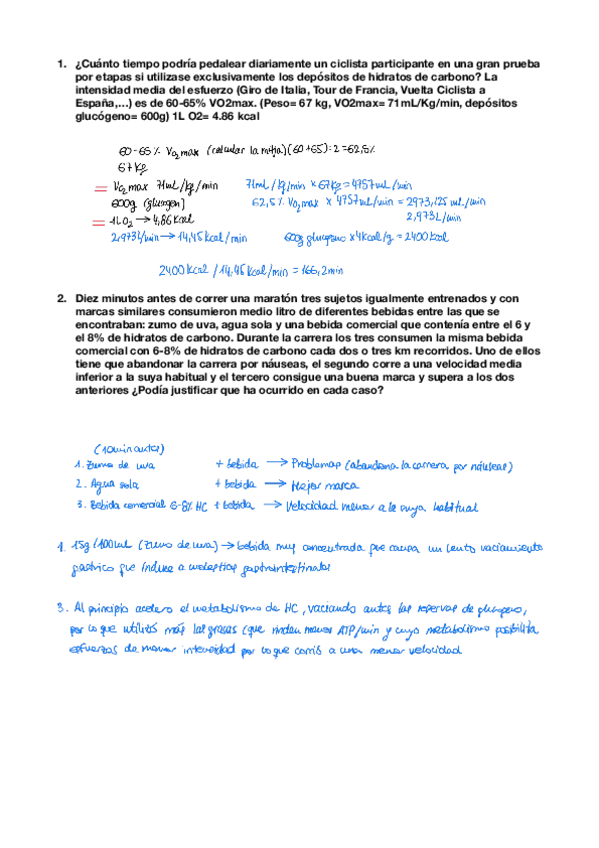 1. ¿Cuánto tiempo podría pedalear diariamente un ciclista participante en una gran prueba
por etapas si utilizase exclusivamente los depósitos de hidratos de carbono? La
intensidad media del esfuerzo (Giro de Italia, Tour de Francia, Vuelta Ciclista a
España,…) es de 60-65% VO2max. (Peso= 67 kg, VO2max= 71mL/Kg/min, depósitos
glucógeno= 600g) 1L O2= 4.86 kcal
60-65% VO2max (calcular la mitja) (60+65):2=62,5%
67Kg
VO2max 71ml/kg/min 71ml/kg/min x 67Kg = 4757ml/min
600g (glucogen) 62,5% VO2max x 4757ml/min = 2973,125 ml/min
1L O2 → 4,86Kcal 2,973L/min
2,973L/min → 14,45Kcal/min 600g glucogeno x 4Kcal/g = 2400Kcal
2400Kcal / 14,45Kcal/min = 166,2min
2. Diez minutos antes de correr una maratón tres sujetos igualmente entrenados y con
marcas similares consumieron medio litro de diferentes bebidas entre las que se
encontraban: zumo de uva, agua sola y una bebida comercial que contenía entre el 6 y
el 8% de hidratos de carbono. Durante la carrera los tres consumen la misma bebida
comercial con 6-8% de hidratos de carbono cada dos o tres km recorridos. Uno de ellos
tiene que abandonar la carrera por náuseas, el segundo corre a una velocidad media
inferior a la suya habitual y el tercero consigue una buena marca y supera a los dos
anteriores ¿Podía justificar que ha ocurrido en cada caso?
(10min antes)
1. Zumo de uva + bebida → Problemas (abandona la carrera por náuseas)
2. Agua sola + bebida → Mejor marca
3. Bebida comercial 6-8% HC + bebida → Velocidad menor a la suya habitual
1. 15g/100ml (zumo de uva) → bebida muy concentrada que causa un lento vaciamiento
gástrico que induce a molestias gastrointestinales
3. Al principio acelero el metabolismo de HC, vaciando antes las reservas de glucógeno,
por lo que utilizó más las grasas (que rinden menos ATP/min y cuyo metabolismo posibilita
esfuerzos de menor intensidad por lo que corrió a una menor velocidad